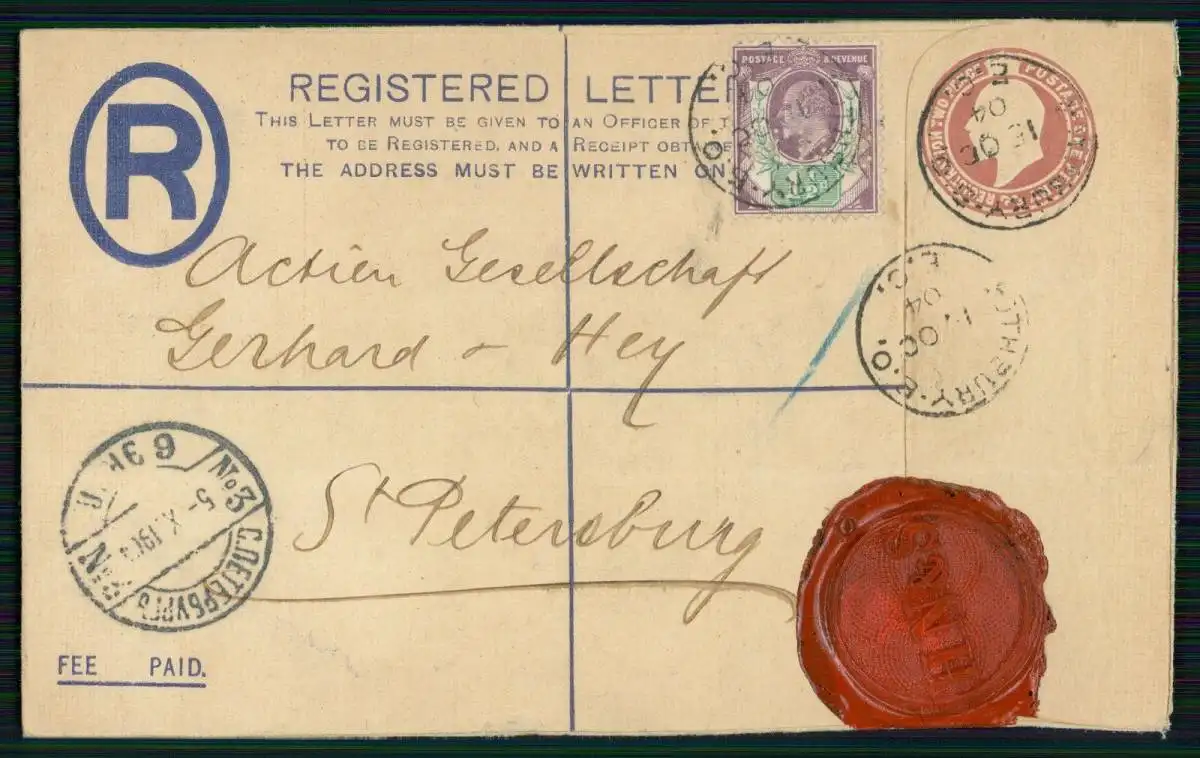 R
REGISTERED LETTER
THIS LETTER MUST BE GIVEN TO AN OFFICER OF
TO BE REGISTERED, AND A RECEIPT
THE ADDRESS MUST BE WRITTEN ON
POSTAGE & REVENUE
POSTAGE
E.C.
OC
04
E.C.
17 OC
04
Actien Gesellschaft
Gerhard & Hey
St Petersburg
С.ПЕТЕРБУРГЪ
№3
5-X.1904
6
FEE PAID.